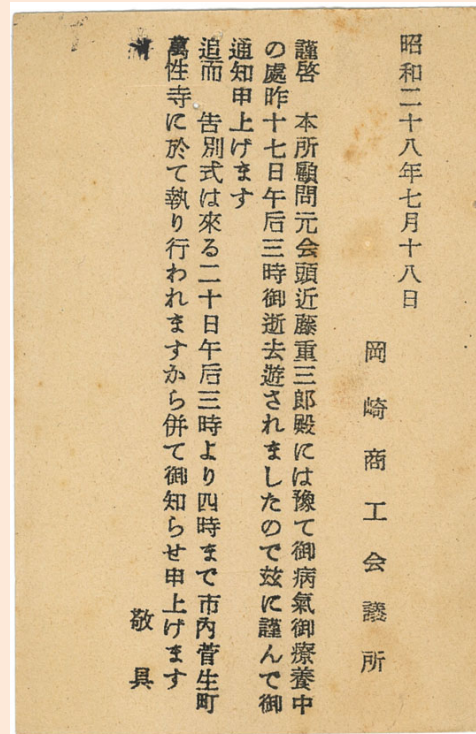 昭和二十八年七月十八日
岡崎商工会議所
謹啓　本所顧問元会頭近藤重三郎殿には豫て御病氣御療養中
の處昨十七日午后三時御逝去遊されましたので玆に謹んで御
通知申上げます
追而　告別式は來る二十日午后三時より四時まで市内菅生町
萬性寺に於て執り行われますから併て御知らせ申上げます
敬具